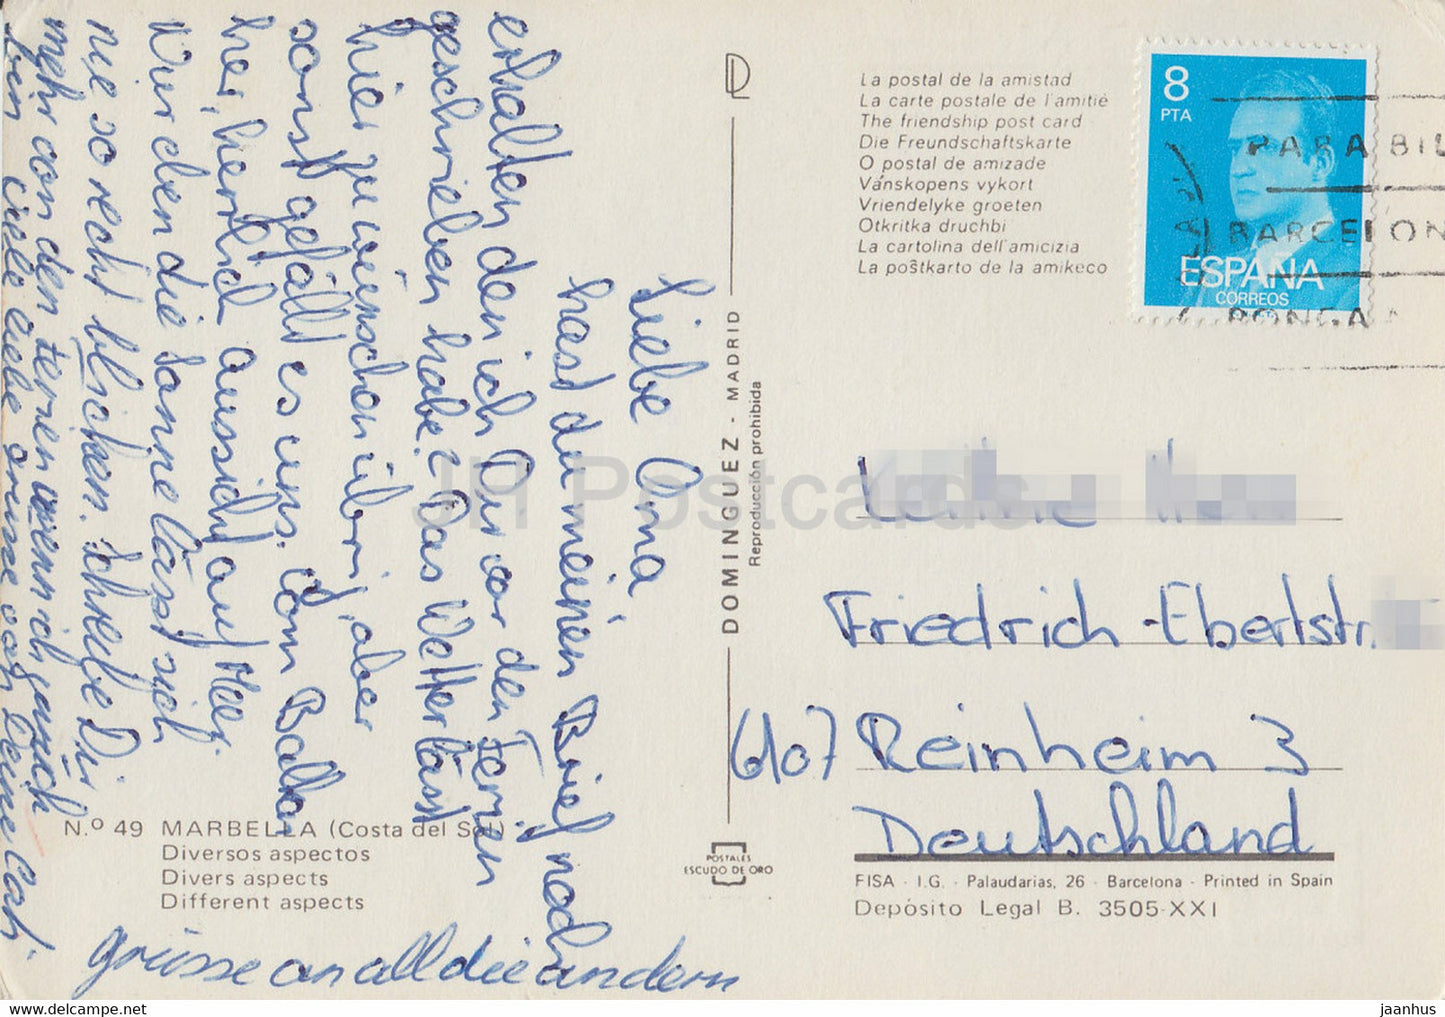 Liebe Oma
hast du meinen Brief noch
erhalten den ich Dir vor den Ferien
geschrieben habe? Das Wetter lässt
hier zu wünschen übrig, aber
sonst gefällt es uns. Vom Balkon
her, herrlich aussicht auf Meer.
Nur eben die Sonne lässt sich
nie so recht blicken. Schreibe Dir
mehr von den Ferien wenn ich zurück
bin viele viele Grüsse von Deine
grüsse an all die andern
N.º 49 MARBELLA (Costa del Sol)
Diversos aspectos
Divers aspects
Different aspects
DOMINGUEZ - MADRID
Reproducción prohibida
POSTALES
ESCUDO DE ORO
La postal de la amistad
La carte postale de l'amitié
The friendship post card
Die Freundschaftskarte
O postal de amizade
Vánskopens vykort
Vriendelyke groeten
Otkritka druchbi
La cartolina dell'amicizia
La poŝtkarto de la amikeco
8
PTA
ESPAÑA
CORREOS
PARA BIL
BARCELON
PONGA
Friedrich-Ebertstr.
6107 Reinheim 3
Deutschland
FISA - I.G. - Palaudarias, 26 - Barcelona - Printed in Spain
Depósito Legal B. 3505-XXI
JH Postcards
www.hippostcard.com
jaanhus